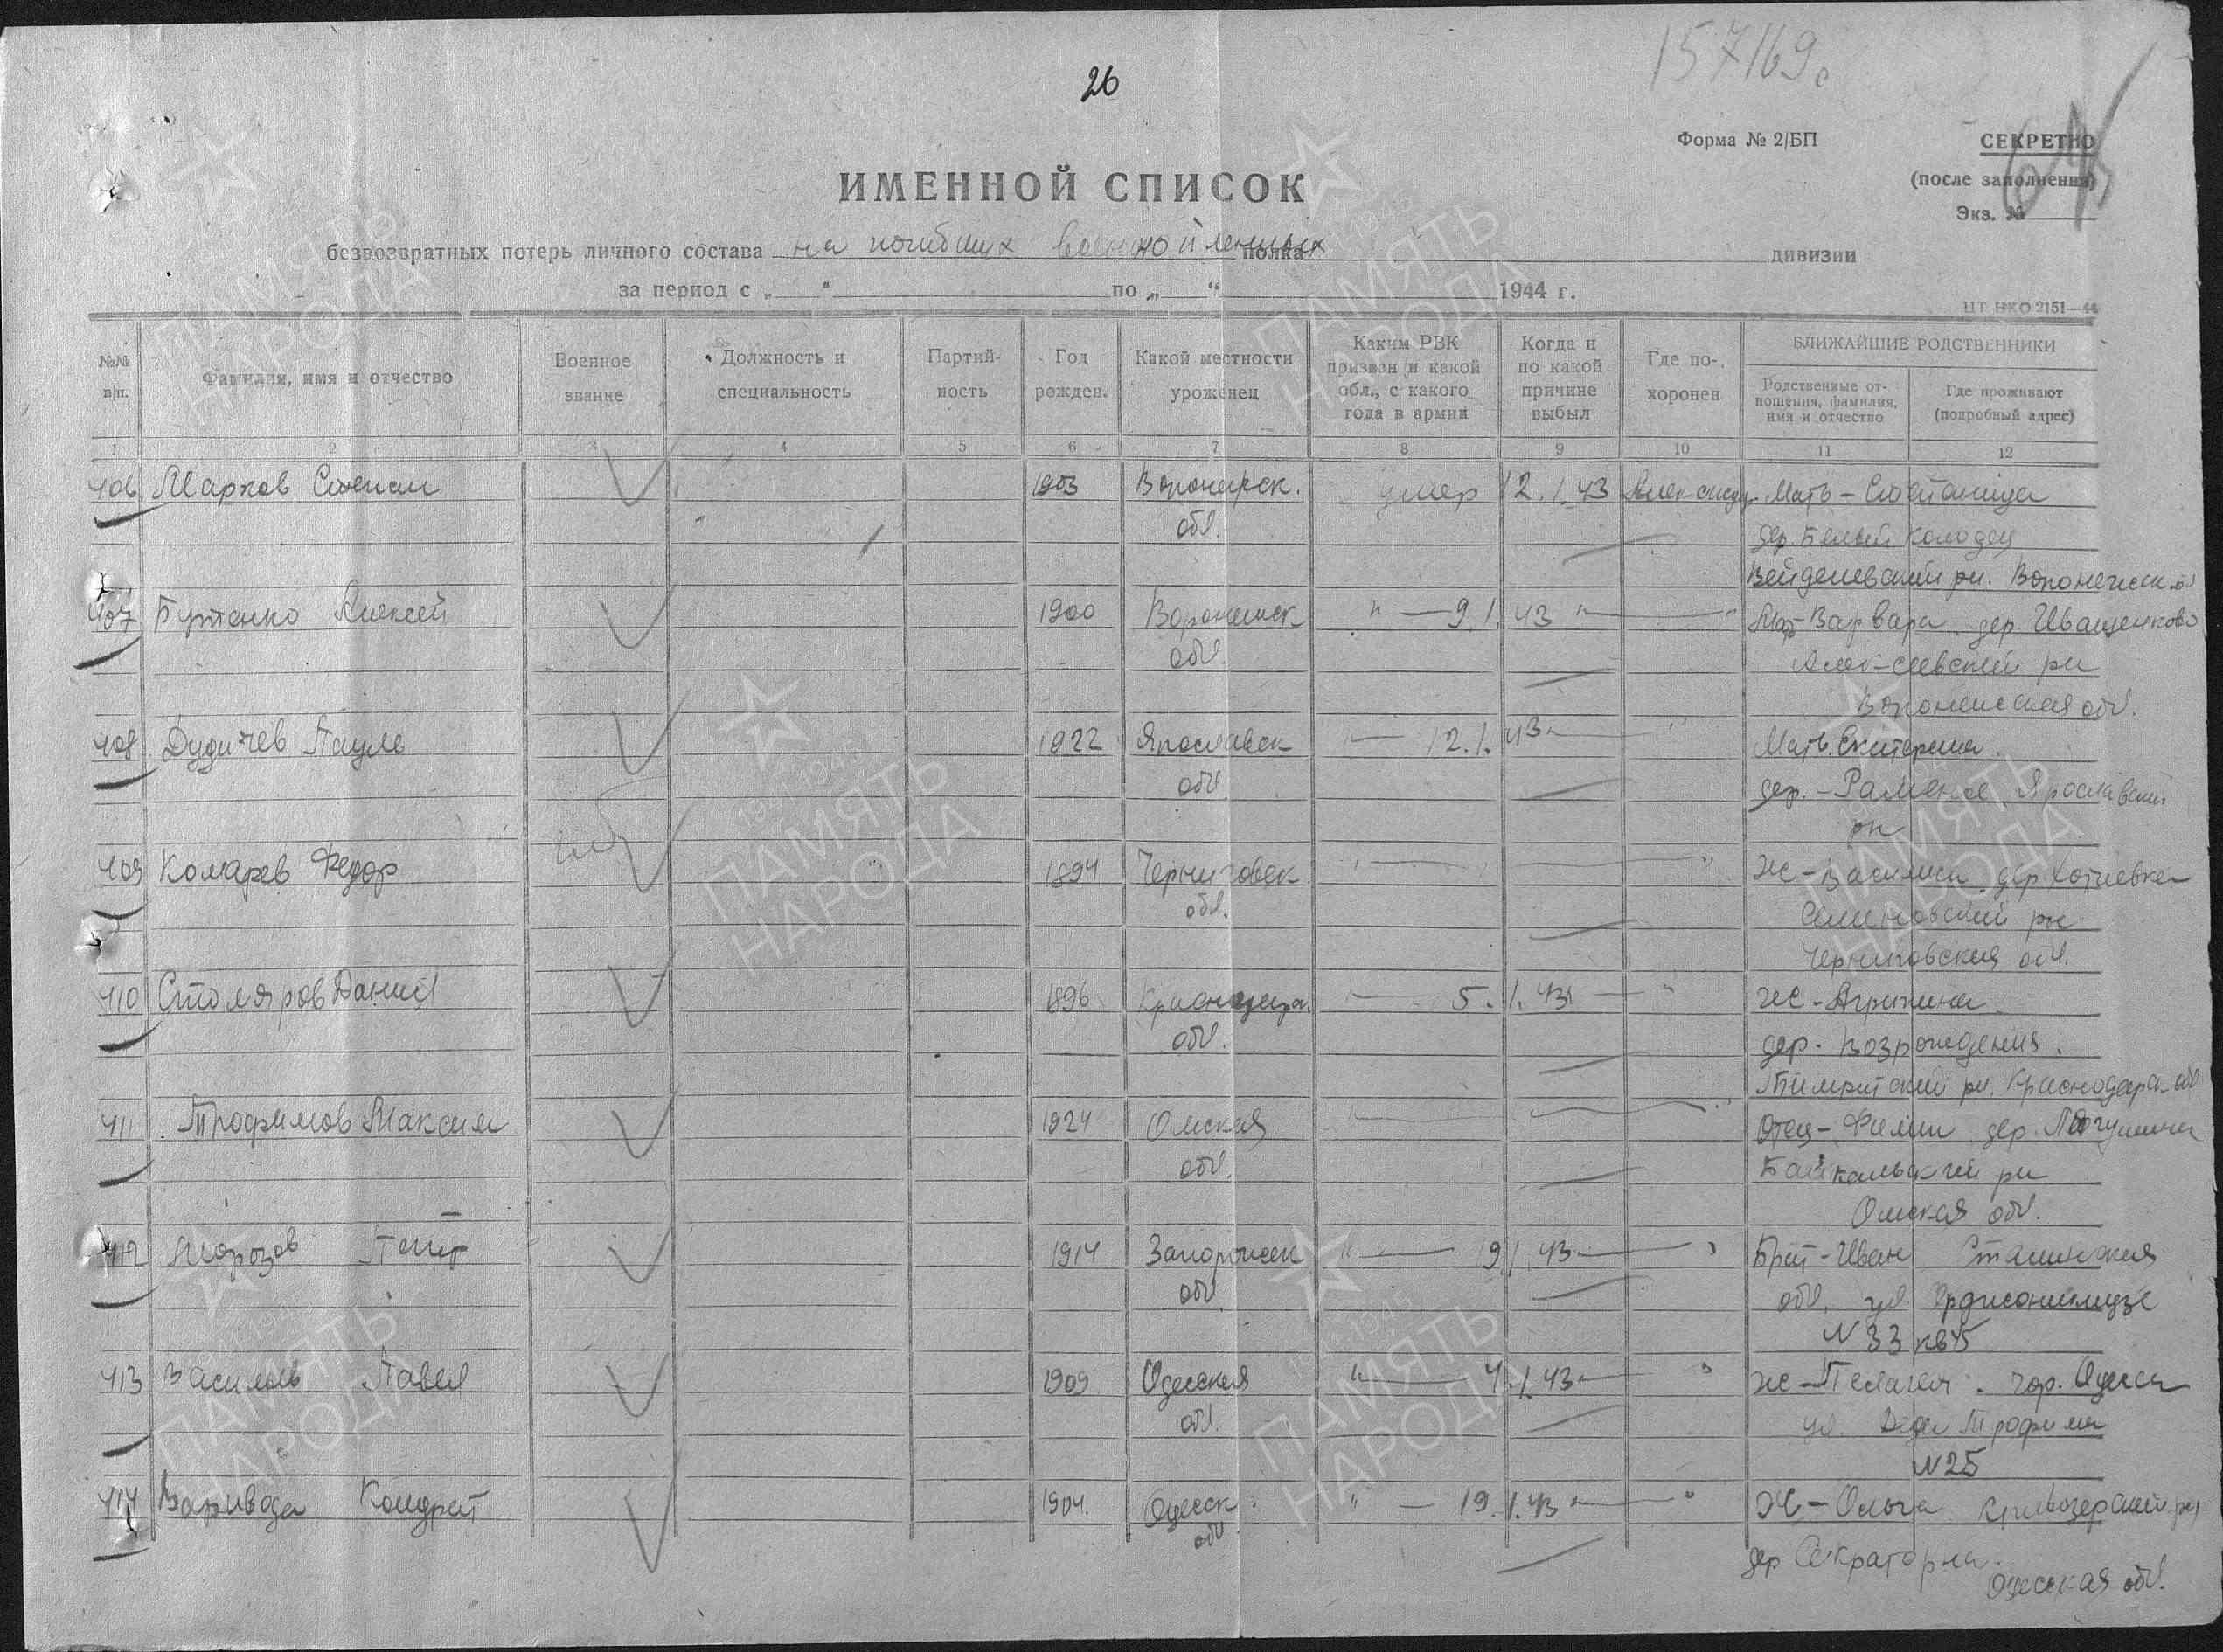 157169с
26
Форма № 2/БП
СЕКРЕТНО
(после заполнения)
Экз. №
ИМЕННОЙ СПИСОК
безвозвратных потерь личного состава на погибших военнопленных полка дивизии
за период с „ “ по „ “ 1944 г.
ЦТ НКО 2151—44
№№ п/п.
Фамилия, имя и отчество
Военное звание
Должность и специальность
Партий-ность
Год рожден.
Какой местности уроженец
Каким РВК призван и какой обл., с какого года в армии
Когда и по какой причине выбыл
Где по-хоронен
БЛИЖАЙШИЕ РОДСТВЕННИКИ
Родственные от-ношения, фамилия, имя и отчество
Где проживают (подробный адрес)
1 2 3 4 5 6 7 8 9 10 11 12
406 Марков Степан 1903 Воронежск. умер 12.1.43 Мать –
обл. дер. Белый Колодец
Вейделевский рн. Воронежск. об
407 Бутенко Алексей 1900 Воронежск " — 9.1.43 " — " Мать Варвара дер. Иващенково
обл. Алексеевский рн
Воронежская обл.
408 Дудичев Пауль 1922 Ярославск — 12.1.43 — " Мать Екатерина
обл. дер. – Раменье Ярославский
рн
409 Комарев Федор 1894 Черниговск " — — " ж – Василиса дер Хотиевка
обл. Семеновский рн
Черниговская обл.
410 Столяров Данил 1896 Краснодар. — 5.1.43 — " ж – Агрипина
обл. дер. Возрождения.
рн. Краснодар. обл
411 Трофимов Максим 1924 Омская " — — " Отец – дер.
обл. Байкальский рн
Омская обл.
412 Морозов Петр 1914 Запорожск " — 19.1.43 — " Брат – Иван Сталинская
обл. обл. ул. Орджоникидзе
N 33 кв 45
413 Василь Павел 1909 Одесская " — 4.1.43 — " ж – Пелагея . гор. Одесса
обл. ул. Деда Трофима
N 25
414 Варивода Кондрат 1904. Одесск. " — 19.1.43 — " Ж – Ольга Кривоозерский рн
обл дер
Одесская обл.
ПАМЯТЬ НАРОДА
1941-1945